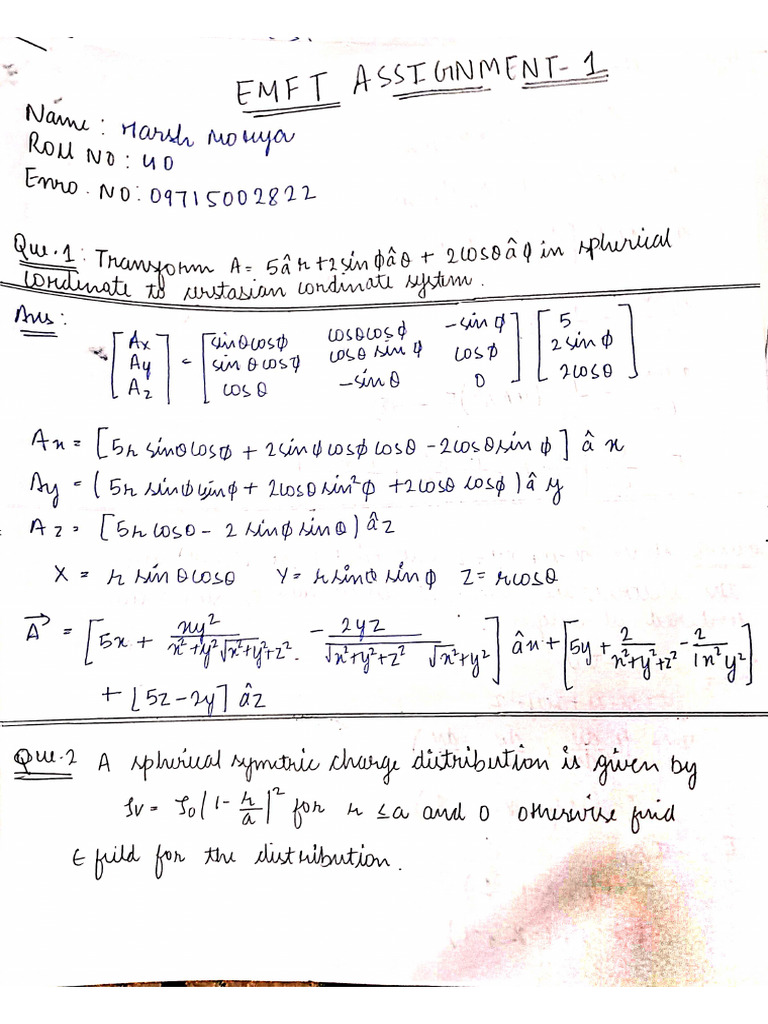 EMFT ASSIGNMENT-1
Name : Harsh Mourya
Roll No : 40
Enro. No: 09715002822
Que.1: Transform A= 5â r+2sinϕâθ + 2cosθâϕ in spherical
cordinate to cerstasian cordinate system.
Ans:
[Ax Ay Az] = [sinθcosϕ cosθcosϕ -sinϕ
sinθcosϕ cosθ sinϕ cosϕ
cosθ -sinθ 0] [5
2 sinϕ
2cosθ]
Ax = [5r sinθcosϕ + 2sinϕcosϕcosθ - 2cosθsinϕ] â x
Ay = (5r sinϕ sinϕ + 2cosθsin²ϕ +2cosθ cosϕ) â y
Az = [5rcosθ - 2 sinϕ sinθ) âz
X = r sinθcosθ Y = r sinθ sinϕ Z = rcosθ
A⃗ = [5x + xy²/x²+y²√x²+y²+z² - 2yz/√x²+y²+z² √x²+y²] âx + [5y + 2/x²+y²+z² - 2/1x²y²]
+ [5z-2y] âz
Que.2 A spherical symetric charge distribution is given by
ρv = ρ0(1- r/a)² for r ≤a and 0 otherwise find
E fild for the distribution.